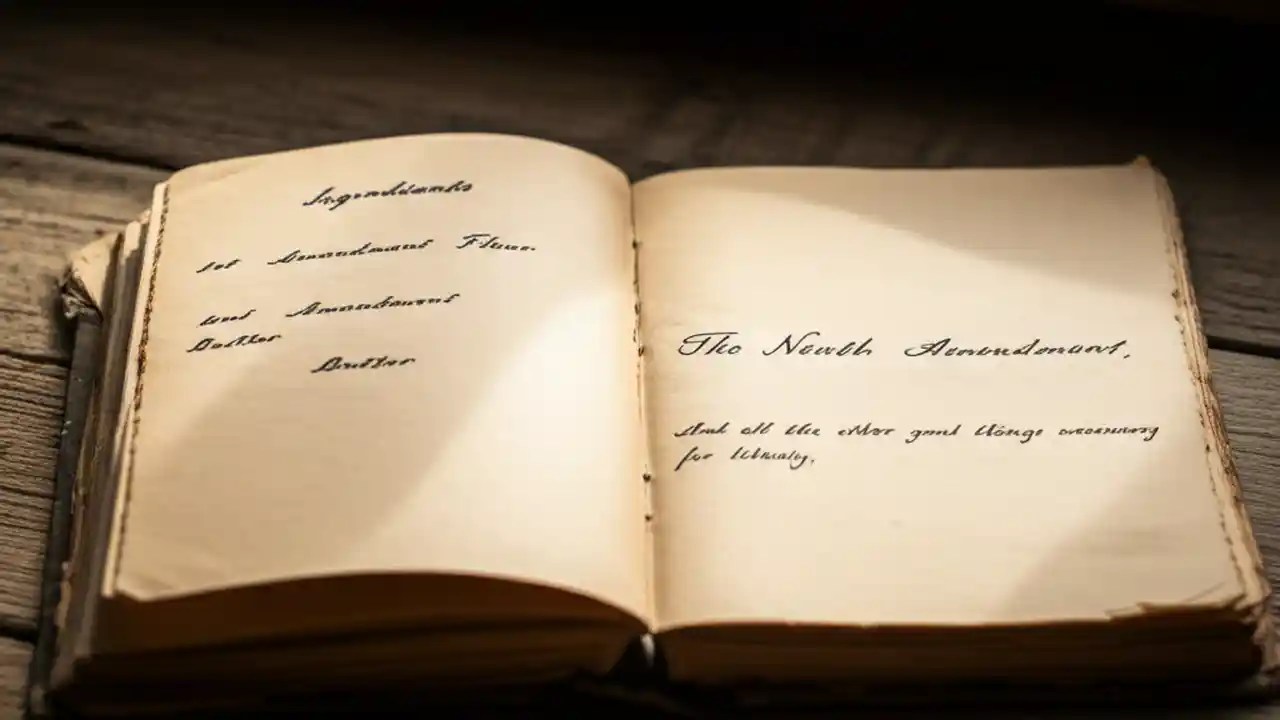 Ingredients
1st Amendment Flour
Amendment
Butter
Butter
The Amendment,
And all the other good things necessary
for